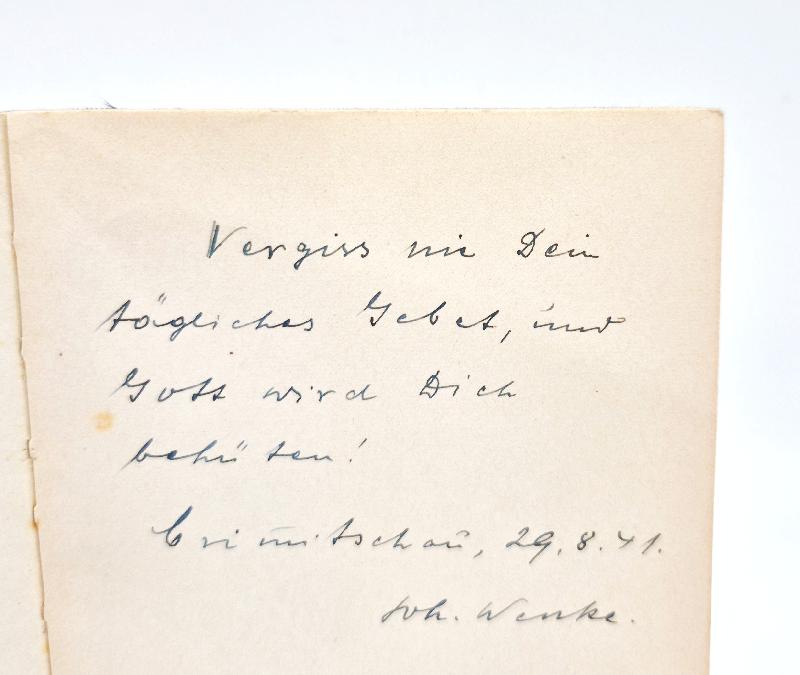 Vergiss nie Dein
tägliches Gebet, und
Gott wird Dich
behüten!
Crimmitschau, 29.8.41.
Joh. Wenke.